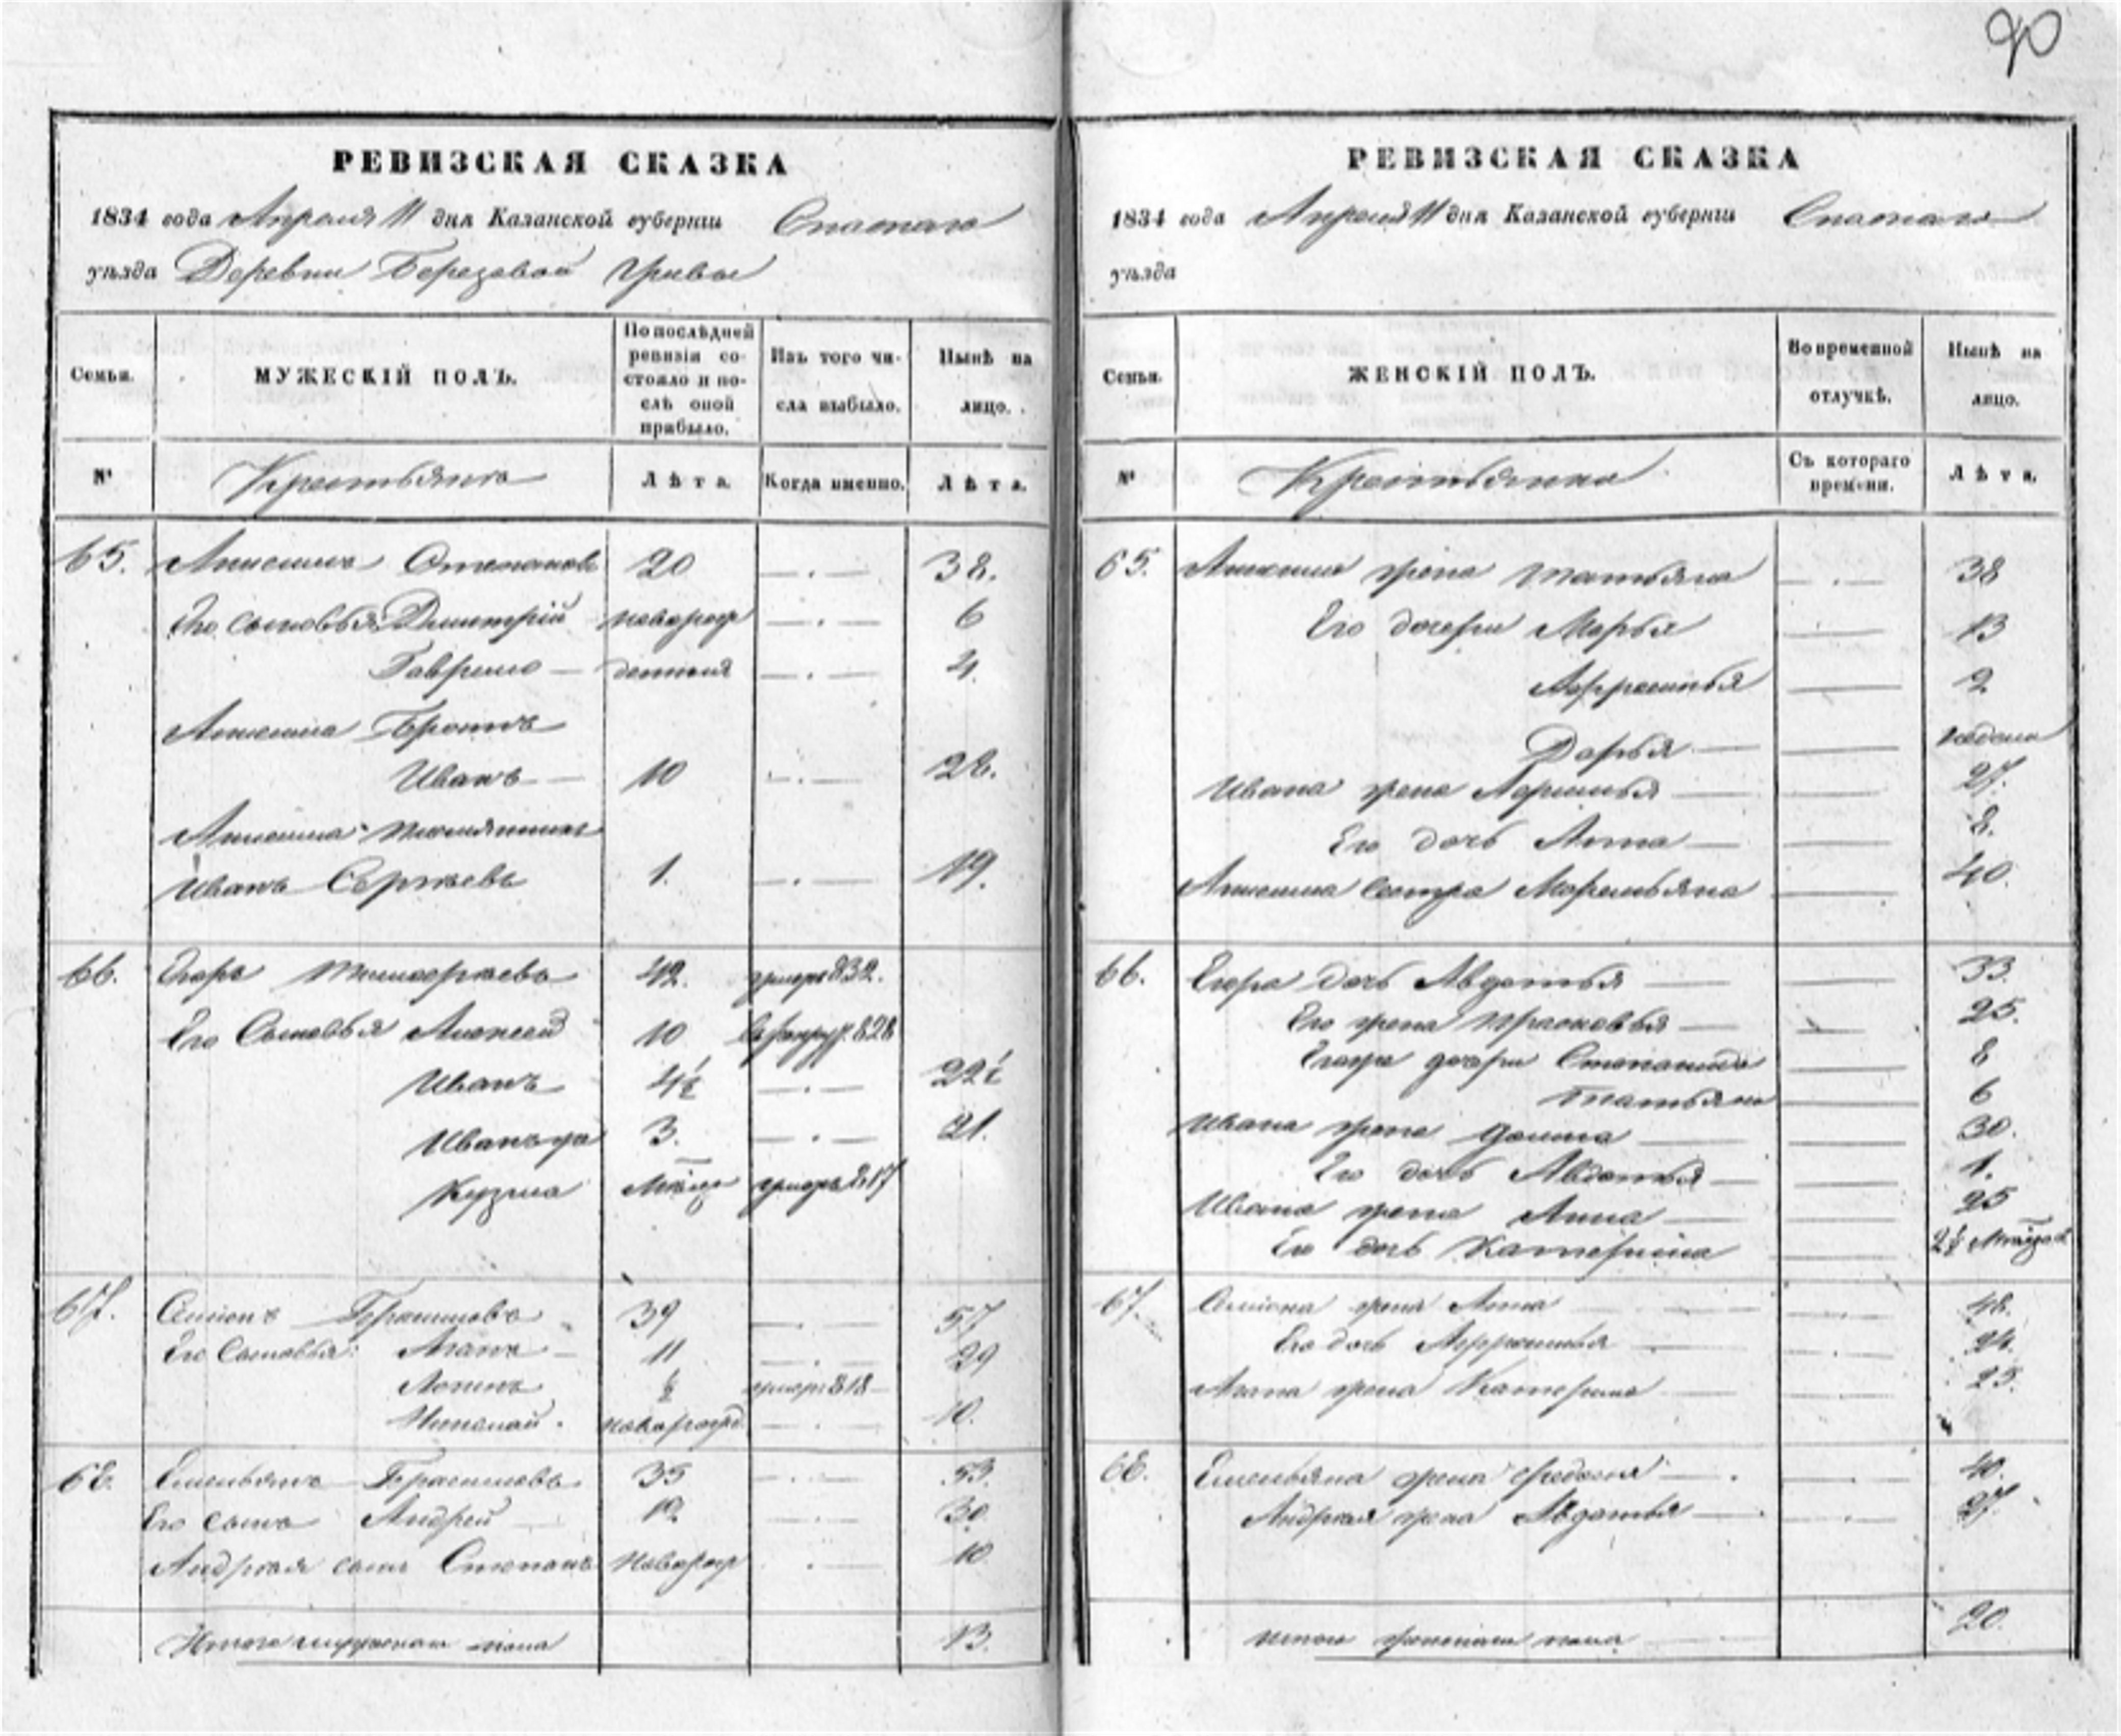 90
РЕВИЗСКАЯ СКАЗКА
1834 года Апреля 11 дня Казанской губернiи Спаскаго
уѣзда Деревни Березовой Гривы
Семьи.
МУЖЕСКIЙ ПОЛЪ.
По послѣдней ревизiи состояло и послѣ оной прибыло.
Изъ того числа выбыло.
Нынѣ на лицо.
№
Крестьянъ
Лѣта.
Когда именно.
Лѣта.
65. Степановъ 20 38.
Его сыновья Дмитрiй новорож 6
Гаврило 4
Братъ
Иванъ 10 28.
племянникъ
Иванъ Сергѣевъ 1. 19.
66. Егоръ 42. умеръ 832.
Его Сыновья Алексей 10 828
Иванъ 4½ 22½
Иванъ же 3. 21.
Кузма умеръ 817
67. Семионъ Герасимовъ 39 57
Его Сыновья: Агапъ 11 29
Логинъ ½ умеръ 818
Николай новорожд. 10.
68. Емельянъ Герасимовъ 35 53.
Его сынъ Андрей 12 30
Андрея сынъ Степанъ новорож 10
Итого мужеска пола 13.
РЕВИЗСКАЯ СКАЗКА
1834 года Апреля 11 дня Казанской губернiи Спаскаго
уѣзда
Семьи.
ЖЕНСКIЙ ПОЛЪ.
Во временной отлучкѣ.
Нынѣ на лицо.
№
Крестьянка
Съ котораго времени.
Лѣта.
65. жена Татьяна 38
Его дочери Марья 13
2
Дарья
Ивана жена 27.
Его дочь Анна 8.
сестра 40.
66. Егора дочь Авдотья 33.
Его жена Прасковья 25.
Егора дочери Степанида 8
Татьяна 6
Ивана жена 30.
Его дочь Авдотья 1.
Ивана жена Анна 25
Его дочь Катерина 2½
67. Семиона жена Анна 48.
Его дочь 24.
Агапа жена Катерина 25.
68. Емельяна жена Федосья 40.
Андрея жена Авдотья 27.
итого женскаго пола 20.